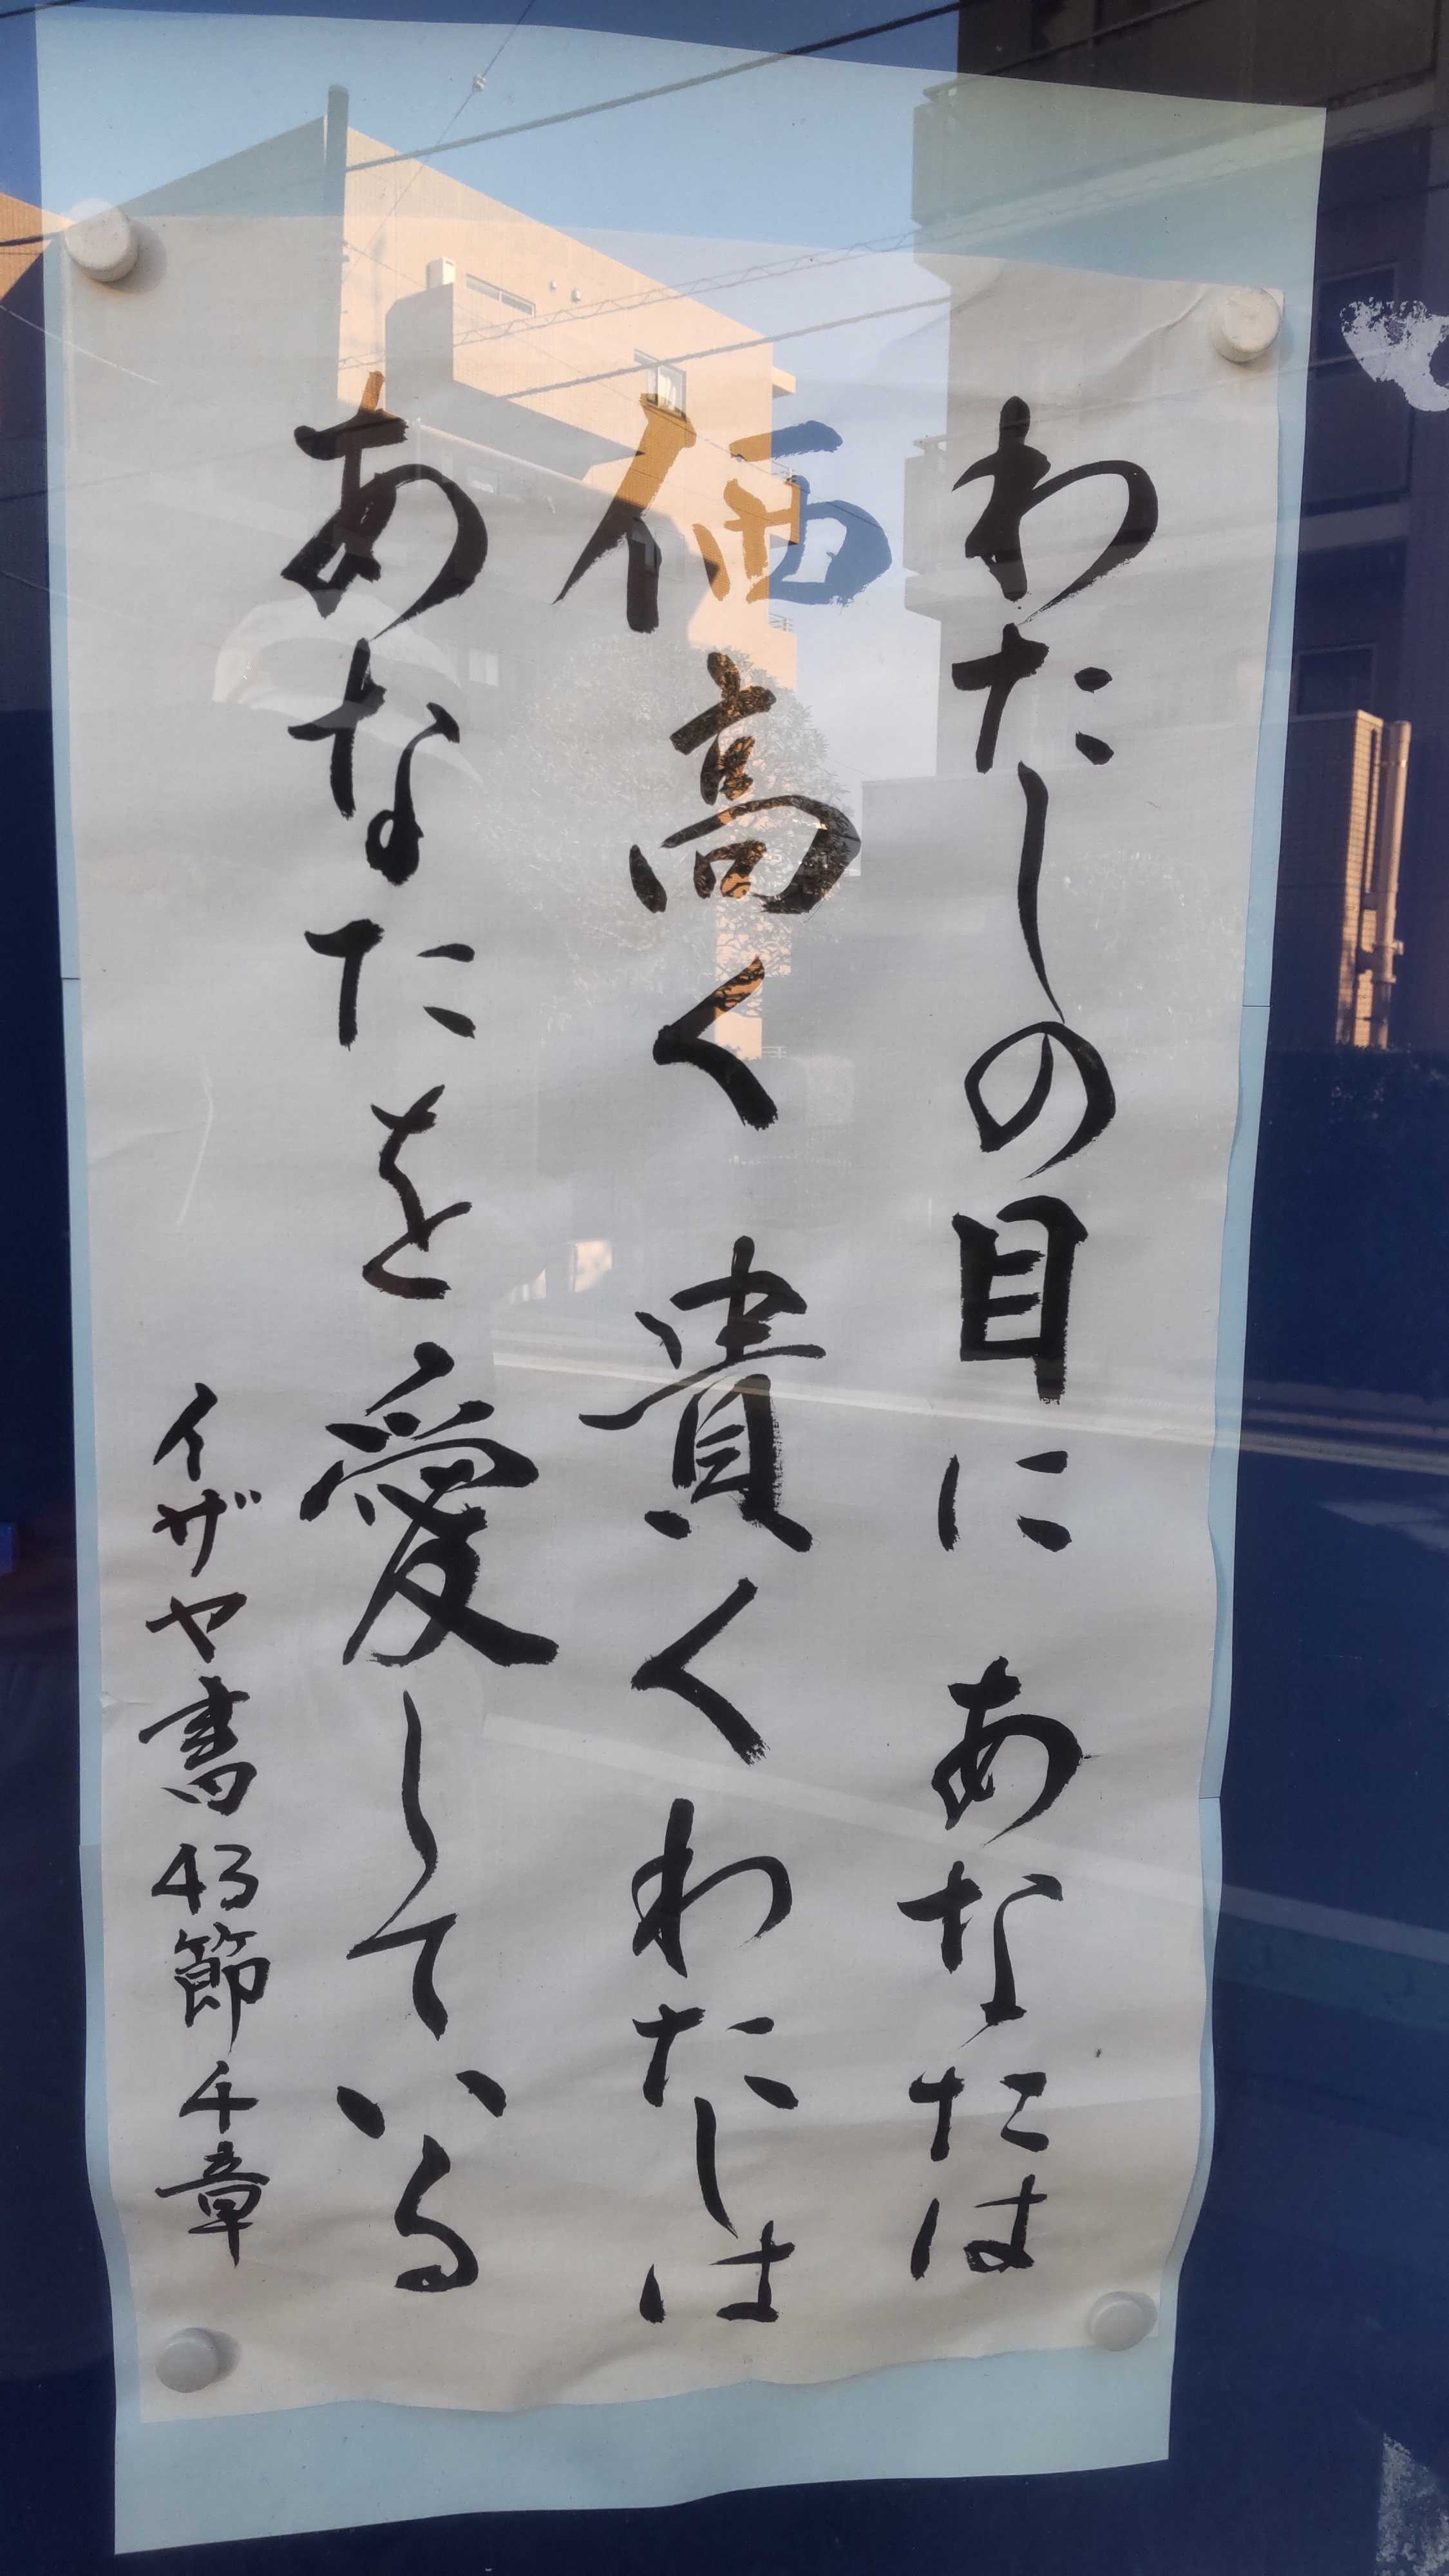 わたしの目に あなたは
価高く 貴く わたしは
あなたを愛している
イザヤ書43節4章